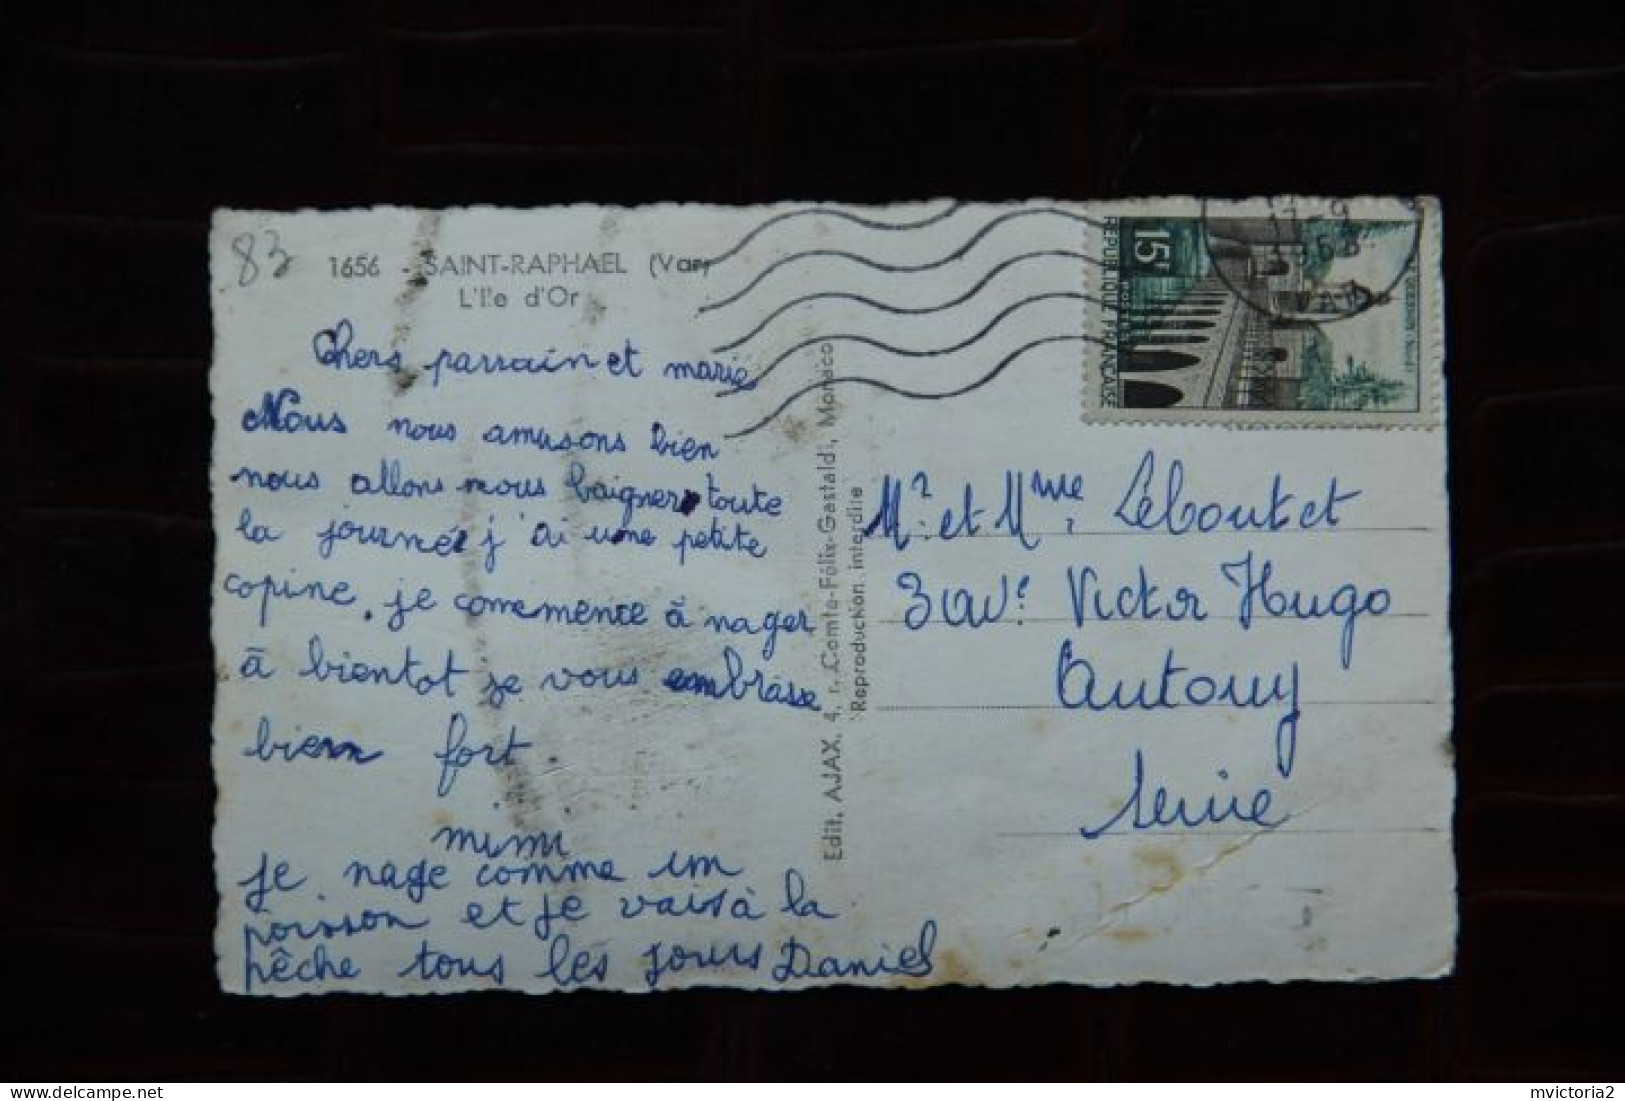 83
1656 - SAINT-RAPHAEL (Var)
L'Ile d'Or
Chers parrain et marie
Nous nous amusons bien
nous allons nous baigner toute
la journée j'ai une petite
copine. je commence à nager
à bientot je vous embrasse
bien fort.
mimi
je nage comme un
poisson et je vais à la
pêche tous les jours Daniel
Edit. AJAX, 4, r. Comte-Félix-Gastaldi, Monaco
Reproduction interdite
REPUBLIQUE FRANÇAISE
15F
POSTES
17-9
VAR
Mr. et Mme Leboutet
3 av. Victor Hugo
Antony
Seine
mvictoria2